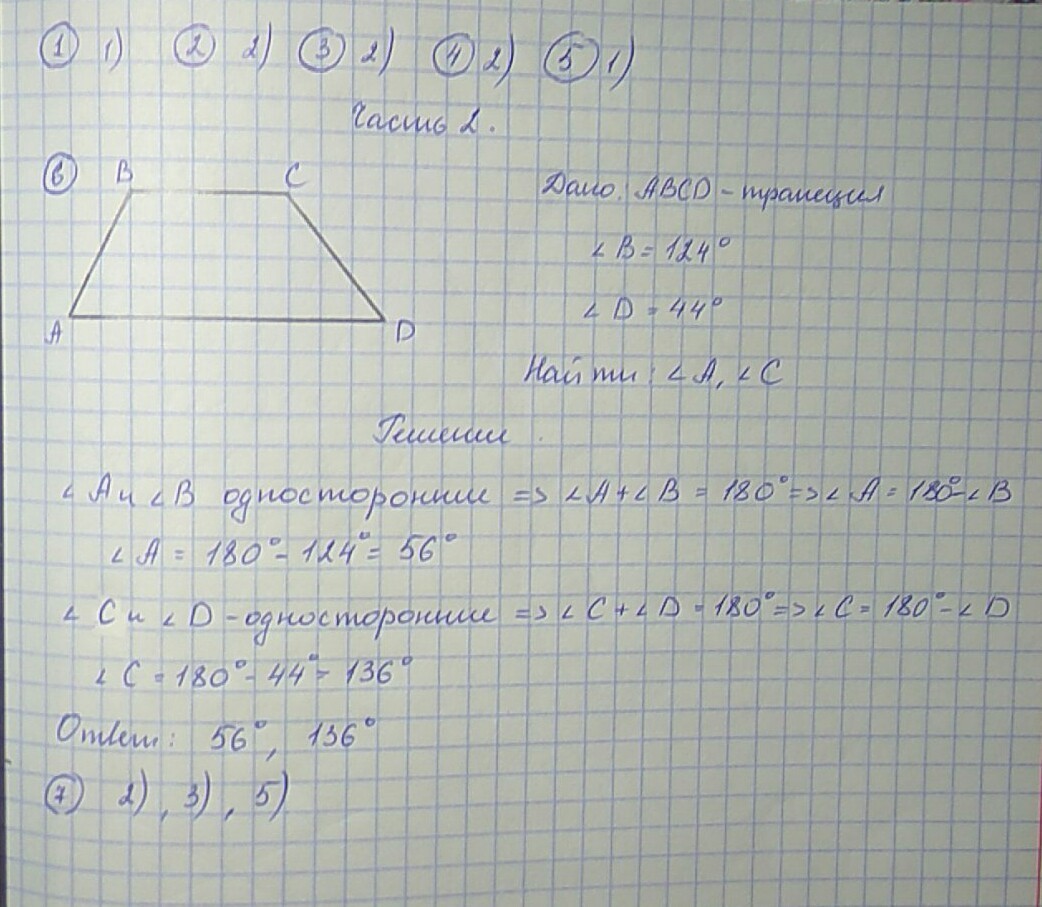 ① 1) ② 2) ③ 2) ④ 2) ⑤ 1)
Часть 2.
⑥ B C
Дано: ABCD - трапеция
∠B = 124°
∠D = 44°
A D
Найти: ∠A, ∠C
Решение.
∠A и ∠B односторонние => ∠A + ∠B = 180° => ∠A = 180° - ∠B
∠A = 180° - 124° = 56°
∠C и ∠D - односторонние => ∠C + ∠D = 180° => ∠C = 180° - ∠D
∠C = 180° - 44° = 136°
Ответ: 56°, 136°
⑦ 2), 3), 5)